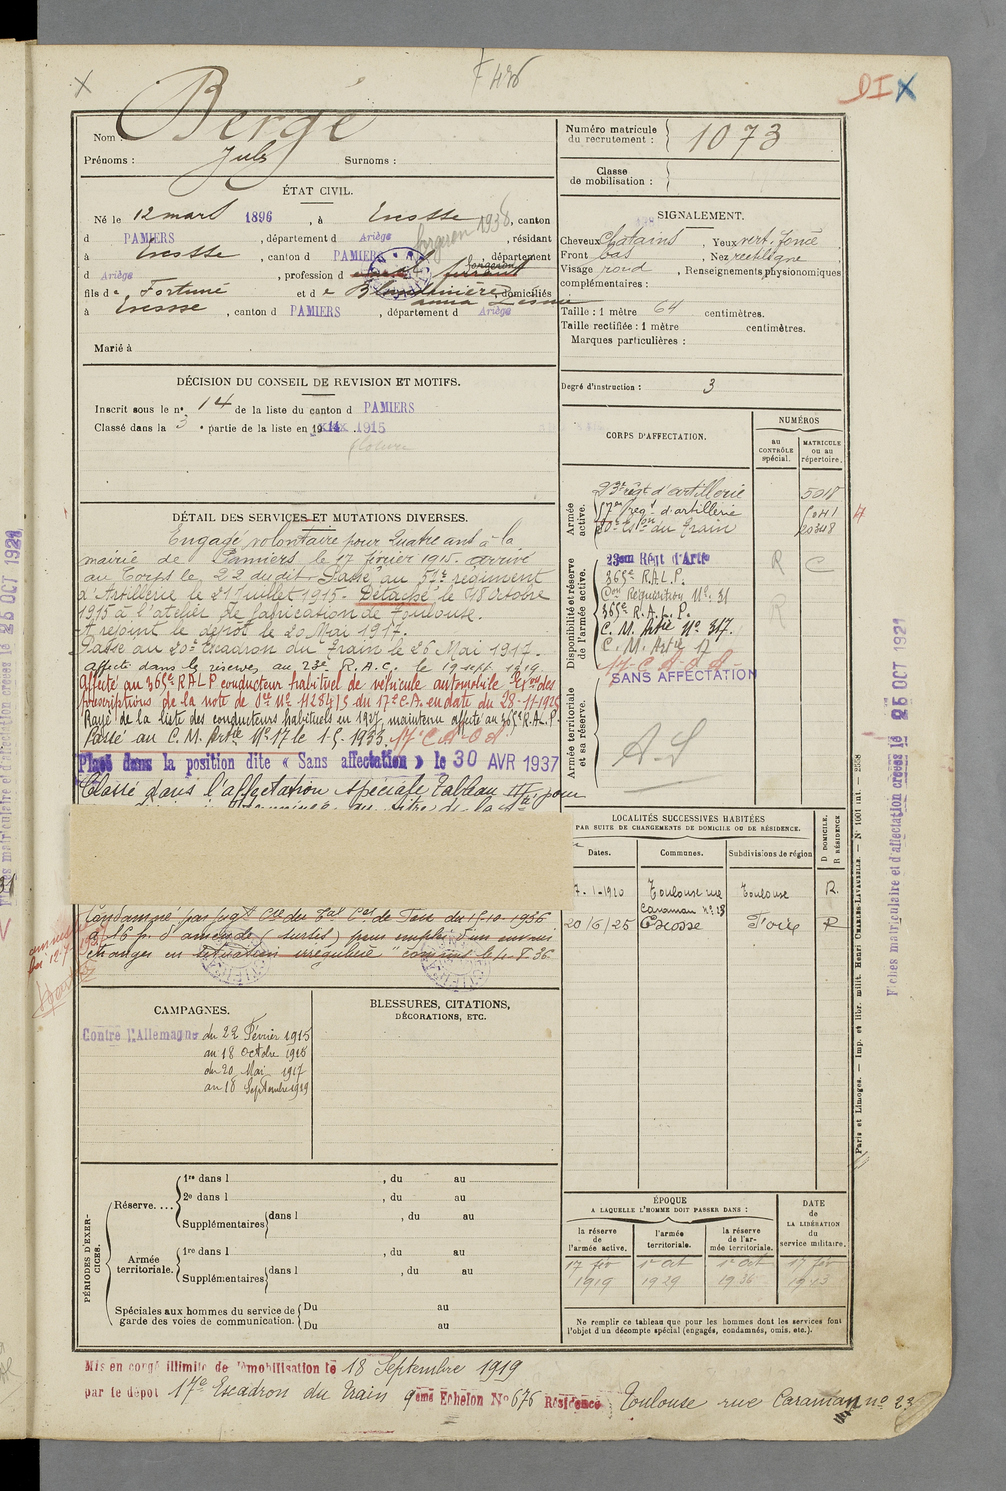 F 476
DI X
Nom : Bergé
Prénoms : Jules Surnoms :
Numéro matricule du recrutement : 1073
Classe de mobilisation :
ÉTAT CIVIL.
Né le 12 mars 1896, à Escosse, canton
d PAMIERS, département d Ariège, résidant
à Escosse, canton d PAMIERS, département
d Ariège, profession d forgeron 1938
fils de Fortuné et de Blondinière, domiciliés
anna
à Escosse, canton d PAMIERS, département d Ariège
Marié à
SIGNALEMENT.
Cheveux chatains, Yeux vert foncé
Front bas, Nez rectiligne
Visage rond, Renseignements physionomiques
complémentaires :
Taille : 1 mètre 64 centimètres.
Taille rectifiée : 1 mètre centimètres.
Marques particulières :
Degré d'instruction : 3
DÉCISION DU CONSEIL DE REVISION ET MOTIFS.
Inscrit sous le n° 14 de la liste du canton d PAMIERS
Classé dans la 3e partie de la liste en 1915
DÉTAIL DES SERVICES ET MUTATIONS DIVERSES.
Engagé volontaire pour quatre ans à la
mairie de Pamiers le 17 février 1915. arrivé
au Corps le 22 dudit. Passé au 57e régiment
d'Artillerie le 21 Juillet 1915. Détaché le 18 Octobre
1915 à l'atelier de fabrication de Toulouse.
A rejoint le dépôt le 20 Mai 1917.
Passé au 20e Escadron du Train le 26 Mai 1917.
Affecté dans la réserve au 23e R.A.C. le 19 sept. 1919.
Affecté au 365e R.A.L.P conducteur habituel de véhicule automobile des
prescriptions de la note de Sce No 11284/S du 17e C.A. en date du 28-11-192
Rayé de la liste des conducteurs habituels en 1927, maintenu affecté au 365e R.A.L.P.
Passé au C. M. Artie No 17 le 1-5-1933. 17 C A O d
Placé dans la position dite « Sans affectation » le 30 AVR 1937
Classé dans l'affectation spéciale tableau III pour
Condamné par jugt Cel du Tal Cel de Foix du 15-10-1936
à 16 f. d'amende (sursis) pour emploi d'un ouvrier
étranger en situation irrégulière commis le 4-8-36
CORPS D'AFFECTATION.
NUMÉROS
au CONTRÔLE spécial.
MATRICULE ou au répertoire.
Armée active.
23e régt d'artillerie 5018
57e régt d'artillerie
20e Esc. du train 20348
Disponibilité et réserve de l'armée active.
23em Régt d'Artie R C
365e R.A.L.P.
Don Réquisition No. 31
365e R.A.L.P. R
C. M. Artie No 317.
C. M. Artie 17
17 C A O d
SANS AFFECTATION
Armée territoriale et sa réserve.
A S
LOCALITÉS SUCCESSIVES HABITÉES
PAR SUITE DE CHANGEMENTS DE DOMICILE OU DE RÉSIDENCE.
D DOMICILE, R RÉSIDENCE
Dates. Communes. Subdivisions de région
7-1-1920 Toulouse rue Caraman No 23 Toulouse R.
20/6/25 Escosse Foix R
CAMPAGNES.
Contre l'Allemagne du 22 Février 1915
au 18 Octobre 1915
du 20 Mai 1917
au 18 Septembre 1919
BLESSURES, CITATIONS,
DÉCORATIONS, ETC.
PÉRIODES D'EXERCICES.
Réserve....
1re dans l , du au
2e dans l , du au
Supplémentaires dans l , du au
Armée territoriale.
1re dans l , du au
Supplémentaires dans l , du au
Spéciales aux hommes du service de garde des voies de communication.
Du au
Du au
ÉPOQUE
A LAQUELLE L'HOMME DOIT PASSER DANS :
la réserve de l'armée active.
l'armée territoriale.
la réserve de l'armée territoriale.
DATE de LA LIBÉRATION du service militaire.
17 fév 1919
1er Oct 1929
1er Oct 1936
17 fév 1943
Ne remplir ce tableau que pour les hommes dont les services font
l'objet d'un décompte spécial (engagés, condamnés, omis, etc.).
Mis en congé illimité de démobilisation le 18 Septembre 1919
par le dépot 17e Escadron du Train 9eme Echelon No 676 Résidence Toulouse rue Caraman no 23
Paris et Limoges. — Imp. et libr. milit. Henri CHARLES-LAVAUZELLE. — N° 1001 int. — 2558
Fiches matriculaire et d'affectation créées le 26 OCT 1921